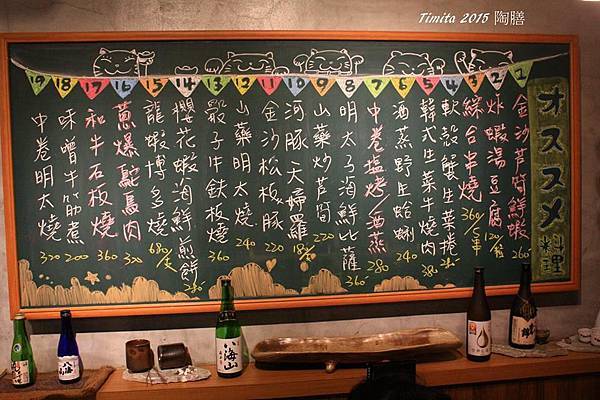 Timita 2015 陶膳
オススメ料理
1 金沙芦筍鮮蝦 260
2 炸蝦湯豆腐
3 綜合串燒 360/串
4 軟殼蟹生菜捲
5 韓式生菜牛燒肉
6 酒蒸野生蛤蜊 240
7 中卷塩烤/酒蒸 280
8 明太子海鮮比薩 360
9 山藥炒芦筍 220
10 河豚天婦羅
11 金沙松板豚 220
12 山藥明太燒 240
13 骰子牛鉄板燒
14 櫻花蝦海鮮煎餅
15 龍蝦博多燒
16 蔥爆鴕鳥肉 320
17 和牛石板燒 360
18 味噌牛筋煮 200
19 中卷明太燒 320
八海山